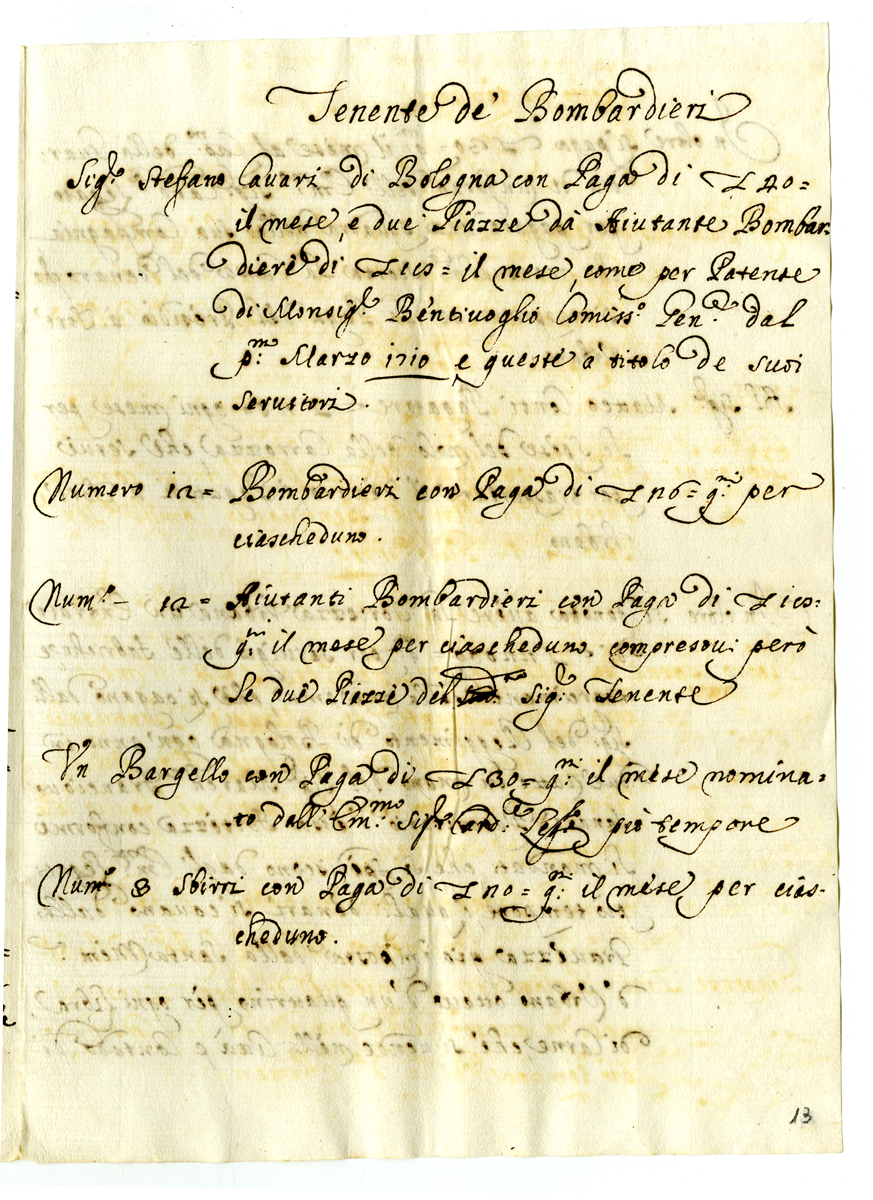 Tenente de' Bombardieri
Sig.r Steffano Cavari di Bologna con Paga di L 40=
il mese, e due Piazze da Aiutante Bombar:
diere di L 10= il mese, come per Patente
di Monsig.r Bentivoglio Comiss.o Gen.le dal
p.mo Marzo 1710 e queste à titolo de suoi
servitori.
Numero 12= Bombardieri con Paga di L 16= q.ni per
ciascheduno.
Num.o - 12= Aiutanti Bombardieri con Paga di L 10:
q.ni il mese per ciascheduno, compresovi però
le due Piazze del Sig.r Tenente
Un Bargello con Paga di L 30= q.ni il mese nomina=
to dall' Em.mo Sig.r Card.le Leg.to prò tempore
Num.o 8 Sbirri con Paga di L 10= q.ni il mese per cias:
cheduno.
13